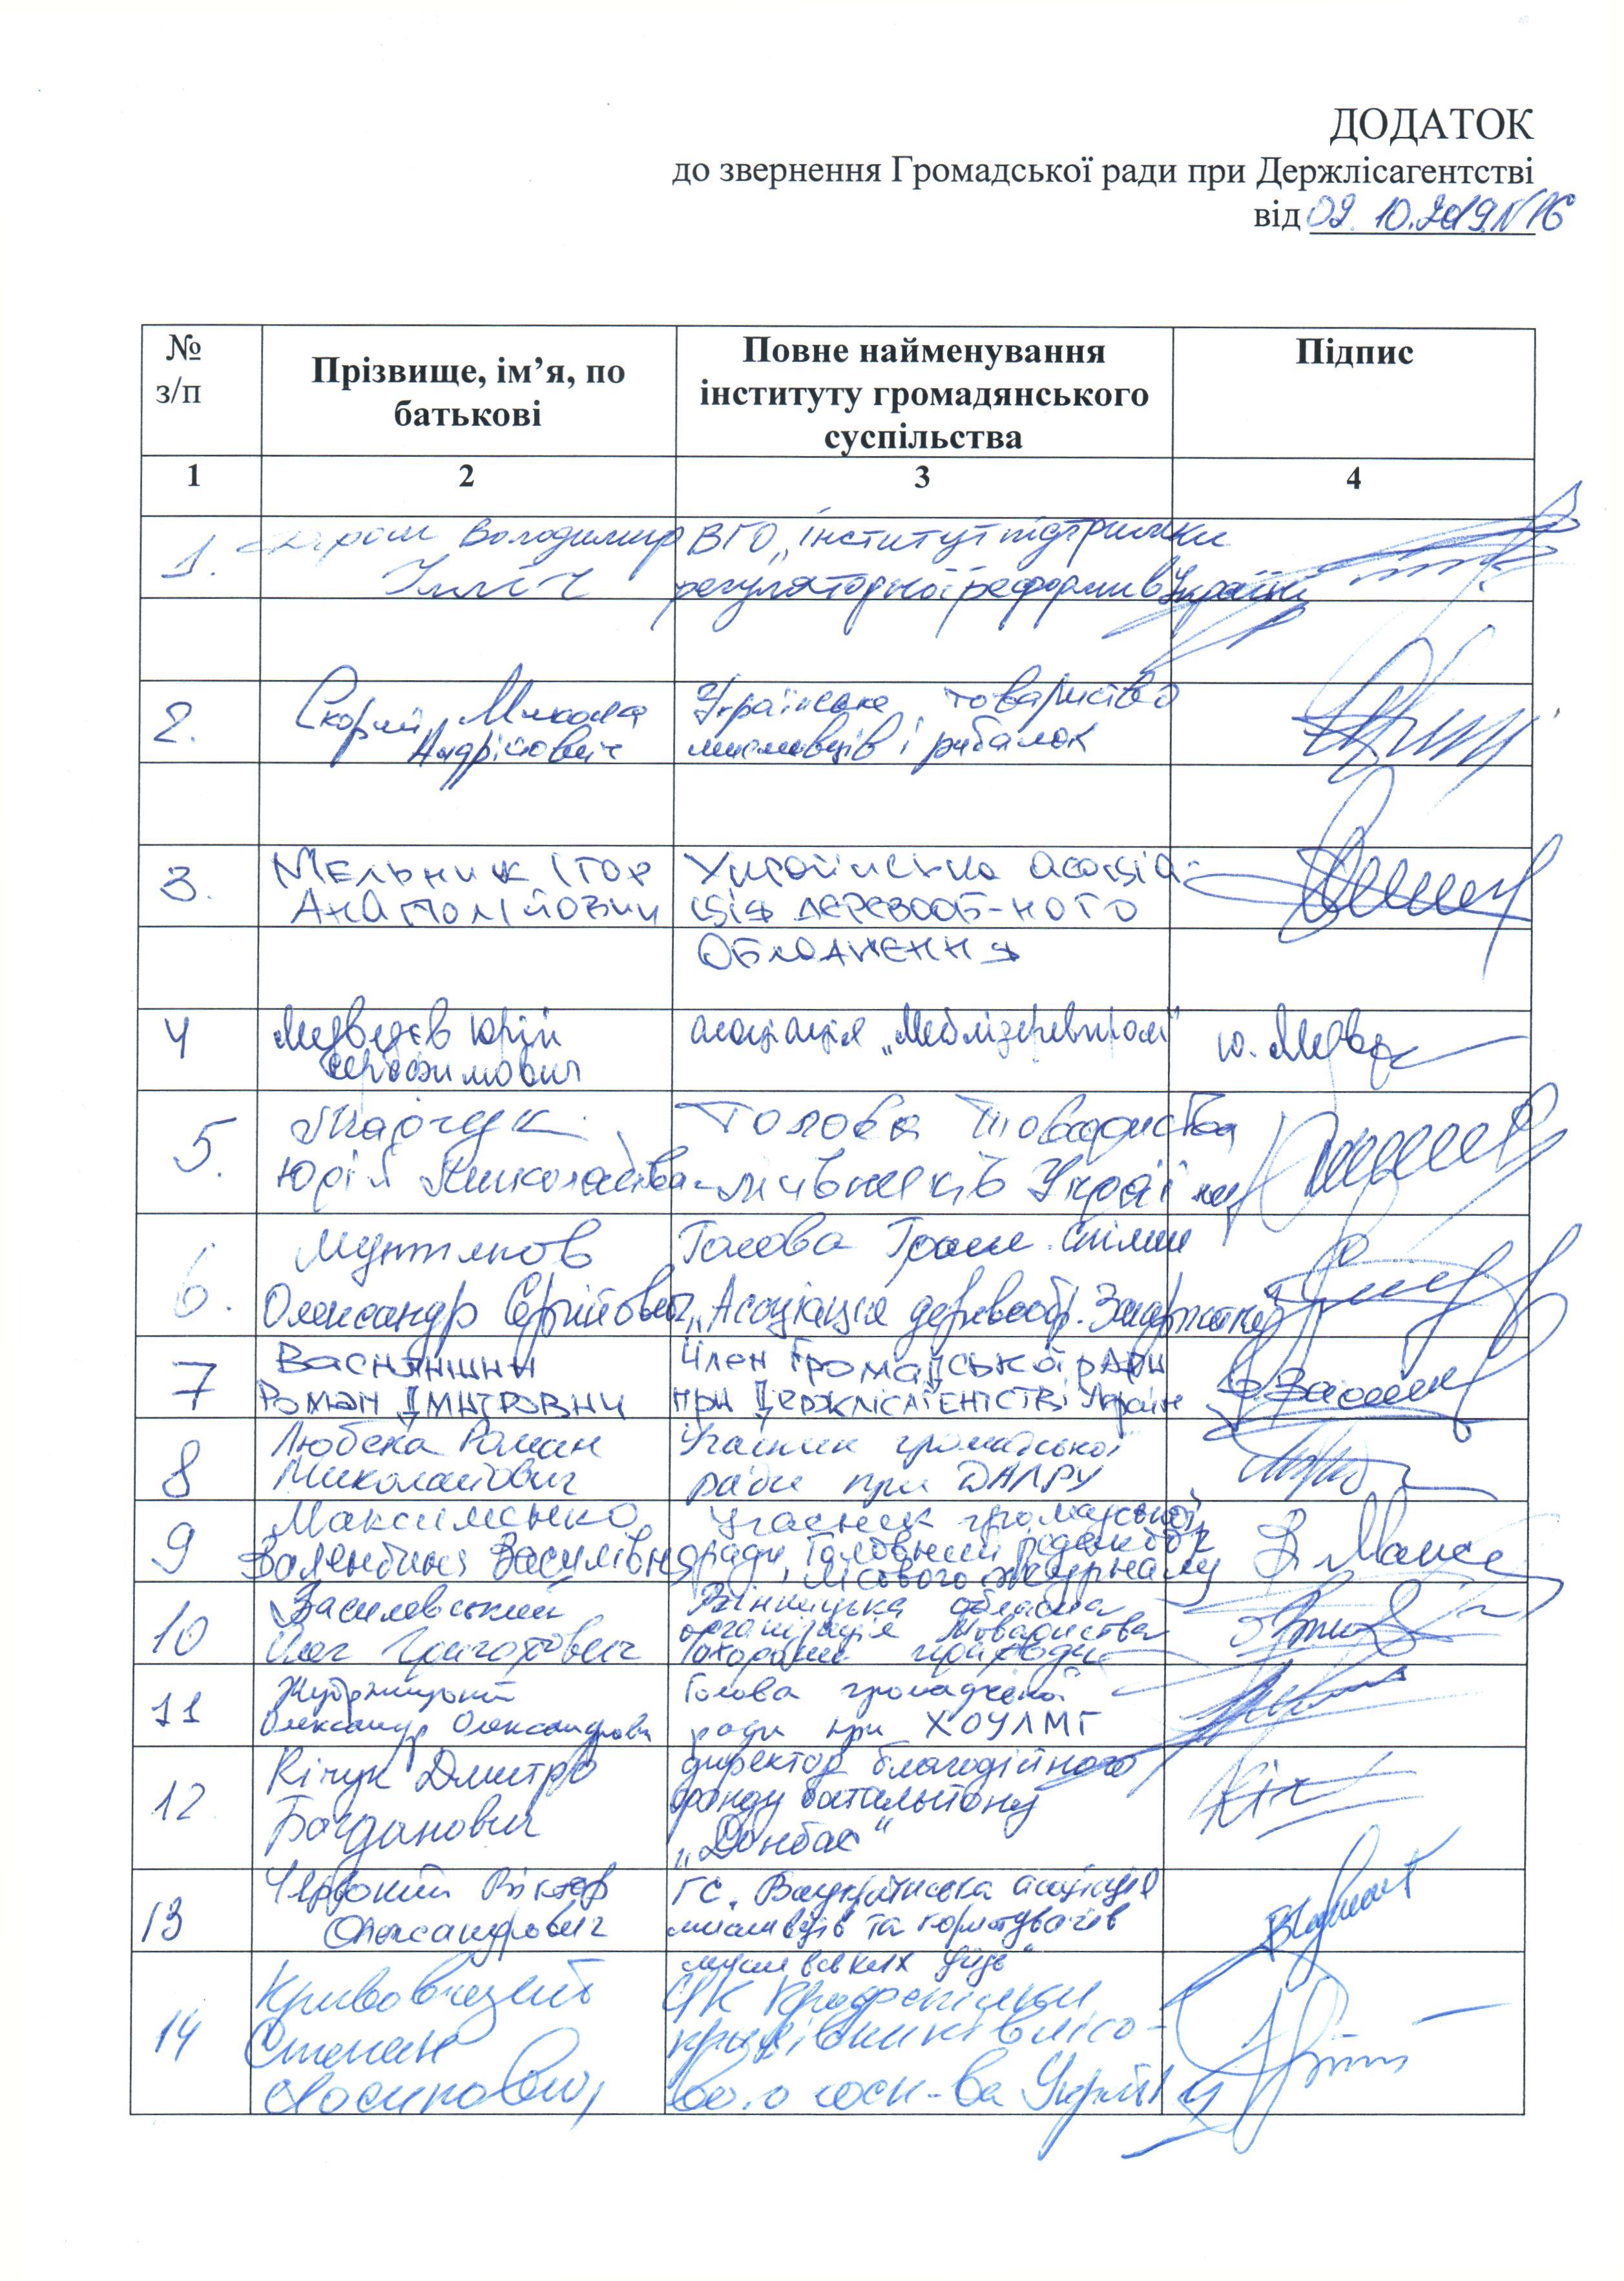 ДОДАТОК
до звернення Громадської ради при Держлісагентстві
від 09.10.2019 N 16
№
з/п
Прізвище, ім’я, по
батькові
Повне найменування
інституту громадянського
суспільства
Підпис
1
2
3
4
1.
Володимир
Ілліч
ВГО „Інститут підтримки
регуляторної реформи в Україні
2.
Скорий Микола
Андрійович
Українське товариство
мисливців і рибалок
3.
Мельник Ігор
Анатолійович
Українська асоціа-
ція деревооб-ного
обладнення
4
Медведєв Юрій
Серафимович
асоціація „Меблідеревпром"
ю. Медве
5.
Марчук
Юрій Миколайова-
Голова товариства
лісівників України
6.
Олександр Сергійович
Голова Гром. Спілки
„Асоціація деревообр. Закарпаття
7
Василишин
Роман Дмитрович
Член Громадської ради
при Держлісагенстві України
8
Любека Роман
Миколайович
Учасник громадської
ради при ДАЛРУ
9
Максименко
Валентина Василівна
Учасник громадської
ради, Головний редактор
Лісового журналу
10
Василевський
Олег Григорович
Вінницька обласна
організація товариства
охорони природи
11
Олександр Олександрови
Голова громадської
ради при ХОУЛМГ
12
Кічук Дмитро
Богданович
директор благодійного
фонду батальйону
„Донбас"
13
Червоний Віктор
Олександрович
ГС „Всеукраїнська асоціація
мисливців та користувачів
мисливських угідь"
14
Степан
Йосипович
ЦК Профспілки
працівників лісо-
вого госп-ва України